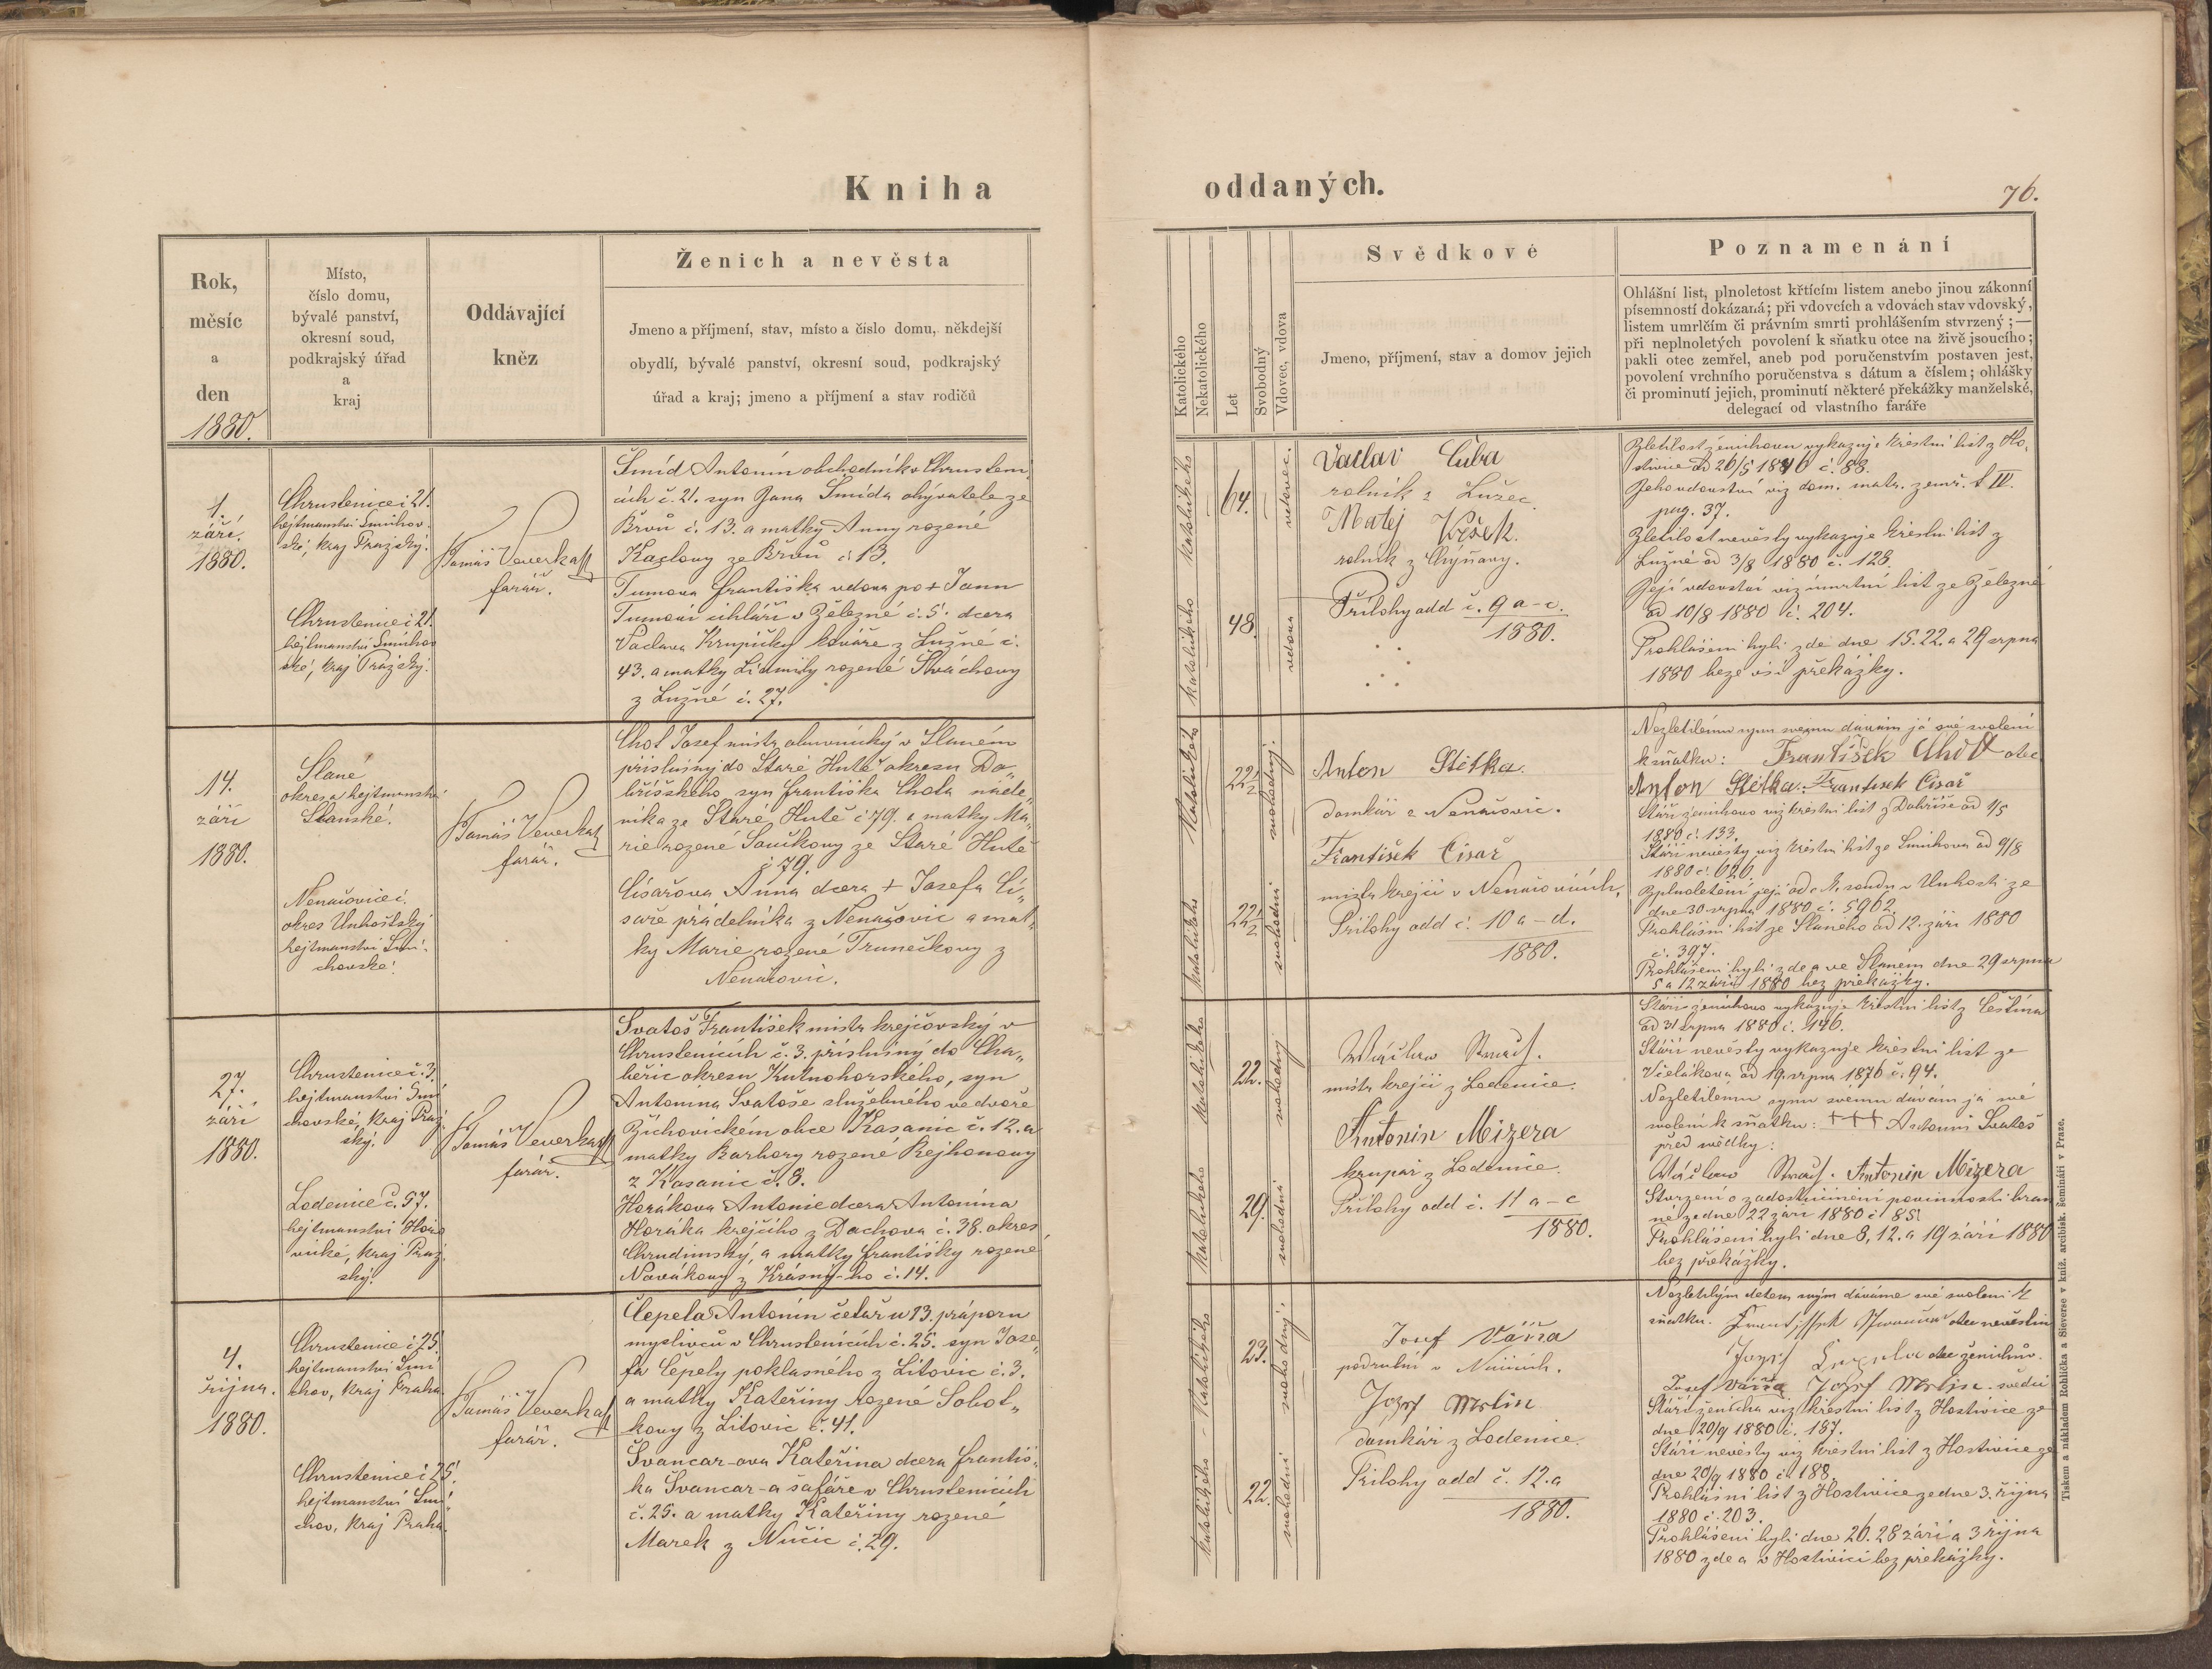 Kniha
oddaných.
76.
Rok,
měsíc
a
den
1880.
Místo,
číslo domu,
bývalé panství,
okresní soud,
podkrajský úřad
a
kraj
Oddávající
kněz
Ženich a nevěsta
Jmeno a příjmení, stav, místo a číslo domu, někdejší
obydlí, bývalé panství, okresní soud, podkrajský
úřad a kraj; jmeno a příjmení a stav rodičů
Katolického
Nekatolického
Let
Svobodný
Vdovec, vdova
Svědkové
Jmeno, příjmení, stav a domov jejich
Poznamenání
Ohlášní list, plnoletost křtícím listem anebo jinou zákonní
písemností dokázaná; při vdovcích a vdovách stav vdovský,
listem umrlčím či právním smrti prohlášením stvrzený; —
při neplnoletých povolení k sňatku otce na živě jsoucího;
pakli otec zemřel, aneb pod poručenstvím postaven jest,
povolení vrchního poručenstva s dátum a číslem; ohlášky
či prominutí jejich, prominutí některé překážky manželské,
delegací od vlastního faráře
1.
září.
1880.
Chrustenice č 21.
hejtmanství Smíchov
ské, kraj Pražský.
Chrustenice č 21.
hejtmanství Smíchov
ské, kraj Pražský.
Tomáš Veverka
farář.
Šmíd Antonín obchodník v Chrusteni
cích č. 21. syn Jana Šmída obývatele ze
Břvů č. 13. a matky Anny rozené
Kaclovy ze Břvů č 13.
Tumova Františka vdova po + Janu
Tumovi cihláři v Železné č. 5. dcera
Václava Krupičky kováře z Lužné č.
43. a matky Lidmily rozené
z Lužné č. 27.
katolického
katolického
64.
48.
vdovec.
vdova
Vaclav Čuba
rolník z Lužec
Matěj Kršek.
rolník z Chýňavy.
Přílohy add č. 9 a-c.
1880.
Zletilost ženichovu vykazuje křestní list z Ho-
stivice od 26/5 č. 88.
Jeho vdovství viz dom. matr. zemř. t IV.
pag. 37.
Zletilost nevěsty vykazuje křestní list z
Lužné od 3/8 1880 č. 128.
Její vdovství viz úmrtní list ze Železné
od 10/8 1880 č. 204.
Prohlášeni byli zde dne 15. 22. a 29 srpna
1880 beze vší překážky.
14.
září
1880.
Slané
okres a hejtmanství
Slanské.
Nenačovice č.
okres Unhošťský
hejtmanství Smí-
chovské.
Tomáš Veverka
farář.
Chot Josef mistr obuvnický v Slaném
příslušný do Staré Hutě okresu Do-
bříšského, syn Františka Chota náde-
níka ze Staré Hutě č 79. a matky Ma-
rie rozené Součkovy ze Staré Hutě
č 79.
Císařova Anna dcera + Josefa Cí-
saře přádelníka z Nenačovic a mat-
ky Marie rozené Trunečkovy z
Nenačovic.
katolického
katolického
22½
22½
svobodný.
svobodná
Anton Stětka.
domkář z Nenačovic.
František Cisař
mistr krejčí v Nenačovicích.
Přílohy add č. 10 a-d.
1880.
Nezletilému synu svému dávám já své svolení
k sňatku: František Chot otec
Anton Stětka. František Cisař
Stáří ženichovo viz křestní list z Dobříše od 1/5
1880 č. 133.
Stáří nevěsty viz křestní list ze Smíchova od 9/8
1880 č. 626.
Zplnoletění její od c. k. soudu v Unhošti ze
dne 30 srpna 1880 č. 5962.
Prohlášní list ze Slaného od 12. září 1880
č. 397.
Prohlášeni byli zde a ve Slaném dne 29 srpna
5 a 12 září 1880 bez překážky.
27.
září
1880.
Chrustenice č. 3.
hejtmanství Smí
chovské, kraj Praž
ský.
Lodenice č. 57.
hejtmanství Hořo
vické, kraj Praž
ský.
Tomáš Veverka
farář.
Svatoš František mistr krejčovský v
Chrustenicích č. 3. příslušný do Cha-
běřic okresu Kutnohorského, syn
Antonína Svatoše služebného ve dvoře
Žichovickém obce Kasanic č. 12. a
matky Barbory rozené Rejhonovy
z Kasanic č. 8.
Horákova Antonie dcera Antonína
Horáka krejčího z Dachova č. 38. okres
Chrudimský, a matky Františky rozené
Novákovy z č. 14.
katolického
katolického
22.
29.
svobodný
svobodná
mistr krejčí z Lodenice.
Antonin Mizera
krupař z Lodenice.
Přílohy add č. 11 a-c
1880.
Stáří ženichovo vykazuje křestní list z Čestína
od 31 srpna 1880 č. 146.
Stáří nevěsty vykazuje křestní list ze
Včelákova od 19. srpna 1876 č. 94.
Nezletilému synu svému dávám já své
svolení k sňatku: +++ Antonín Svatoš
před svědky:
Antonin Mizera
Stvrzení o zadostučinění povinnosti bran
né ze dne 22 září 1880 č 851
Prohlášeni byli dne 8, 12. a 19 září 1880
bez překážky.
4.
října.
1880.
Chrustenice č 25.
hejtmanství Smí
chov, kraj Praha.
Chrustenice č 25.
hejtmanství Smí
chov, kraj Praha.
Tomáš Veverka
farář.
Čepela Antonín četař u 13. práporu
myslivců v Chrustenicích č. 25. syn Jose-
fa Čepely poklasného z Litovic č. 3.
a matky Kateřiny rozené Sobot-
kovy z Litovic č. 41.
Švancar-ova Kateřina dcera Františ-
ka Švancar-a šafáře v Chrustenicích
č. 25. a matky Kateřiny rozené
Marek z Nučic č. 29.
katolického
katolického
23.
22.
svobodný.
svobodná
Josef Váňa
podruhní v Nučicích.
Josef
domkář z Lodenice.
Přílohy add č. 12. a
1880.
Nezletilým dětem svým dáváme své svolení k
sňatku. otec nevěstin
otec ženichův.
Josef Váňa Josef svědci
Stáří ženicha viz křestní list z Hostivice ze
dne 20/9 1880 č. 187.
Stáří nevěsty viz křestní list z Hostivice ze
dne 20/9 1880 č. 188.
Prohlášní list z Hostivice ze dne 3. října
1880 č. 203.
Prohlášeni byli dne 26. 28 září a 3 října
1880 zde a v Hostivici bez překážky.
Tiskem a nákladem Rohlíčka a Sieverse v kníž. arcibisk. semináři v Praze.